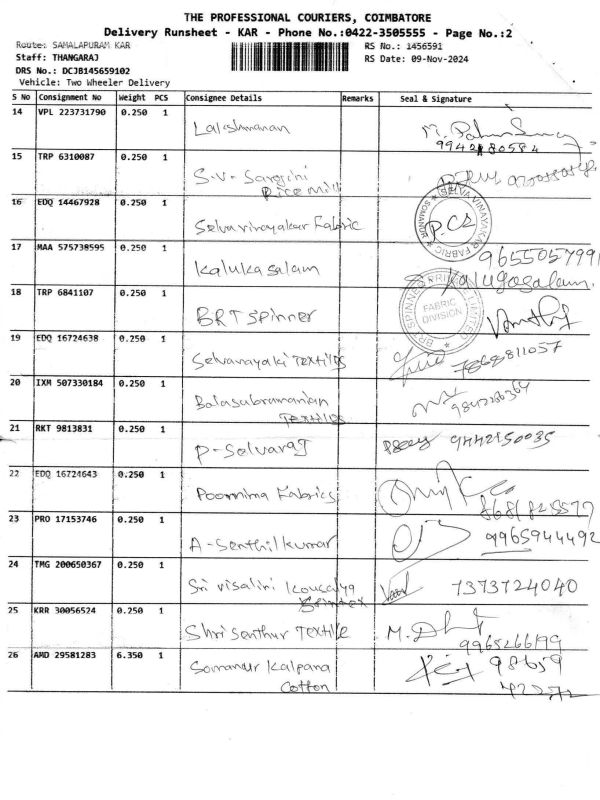 THE PROFESSIONAL COURIERS, COIMBATORE
Delivery Runsheet - KAR - Phone No.:0422-3505555 - Page No.:2
Route: SAMALAPURAM KAR
RS No.: 1456591
Staff: THANGARAJ
RS Date: 09-Nov-2024
DRS No.: DCJB145659102
Vehicle: Two Wheeler Delivery
S No Consignment No Weight PCS Consignee Details Remarks Seal & Signature
14 VPL 223731790 0.250 1 Lakshmanan
9942180584
15 TRP 6310087 0.250 1 S.V. Sargini
Rice Mill
16 EDQ 14467928 0.250 1 Selvavinayakar Fabric P.CS
SELVA VINAYAKAR FABRIC
SOMANUR
17 MAA 575738595 0.250 1 Kalukasalam 9655057991
Kalugasalam
18 TRP 6841107 0.250 1 BRT Spinner
FABRIC
DIVISION
19 EDQ 16724638 0.250 1 Selvanayaki Textiles 7868811057
20 IXM 507330184 0.250 1 Balasubramanian
Textiles
21 RKT 9813831 0.250 1 P-Selvaraj 9442150035
22 EDQ 16724643 0.250 1 Poornima Fabrics
23 PRO 17153746 0.250 1 A-Senthilkumar 9965944492
24 TMG 200650367 0.250 1 Sri visalini Kousalya 7373724040
25 KRR 30056524 0.250 1 Shri Senthur Textile M.
9965266199
26 AMD 29581283 6.350 1 Somanur Kalpana 98659
Cotton